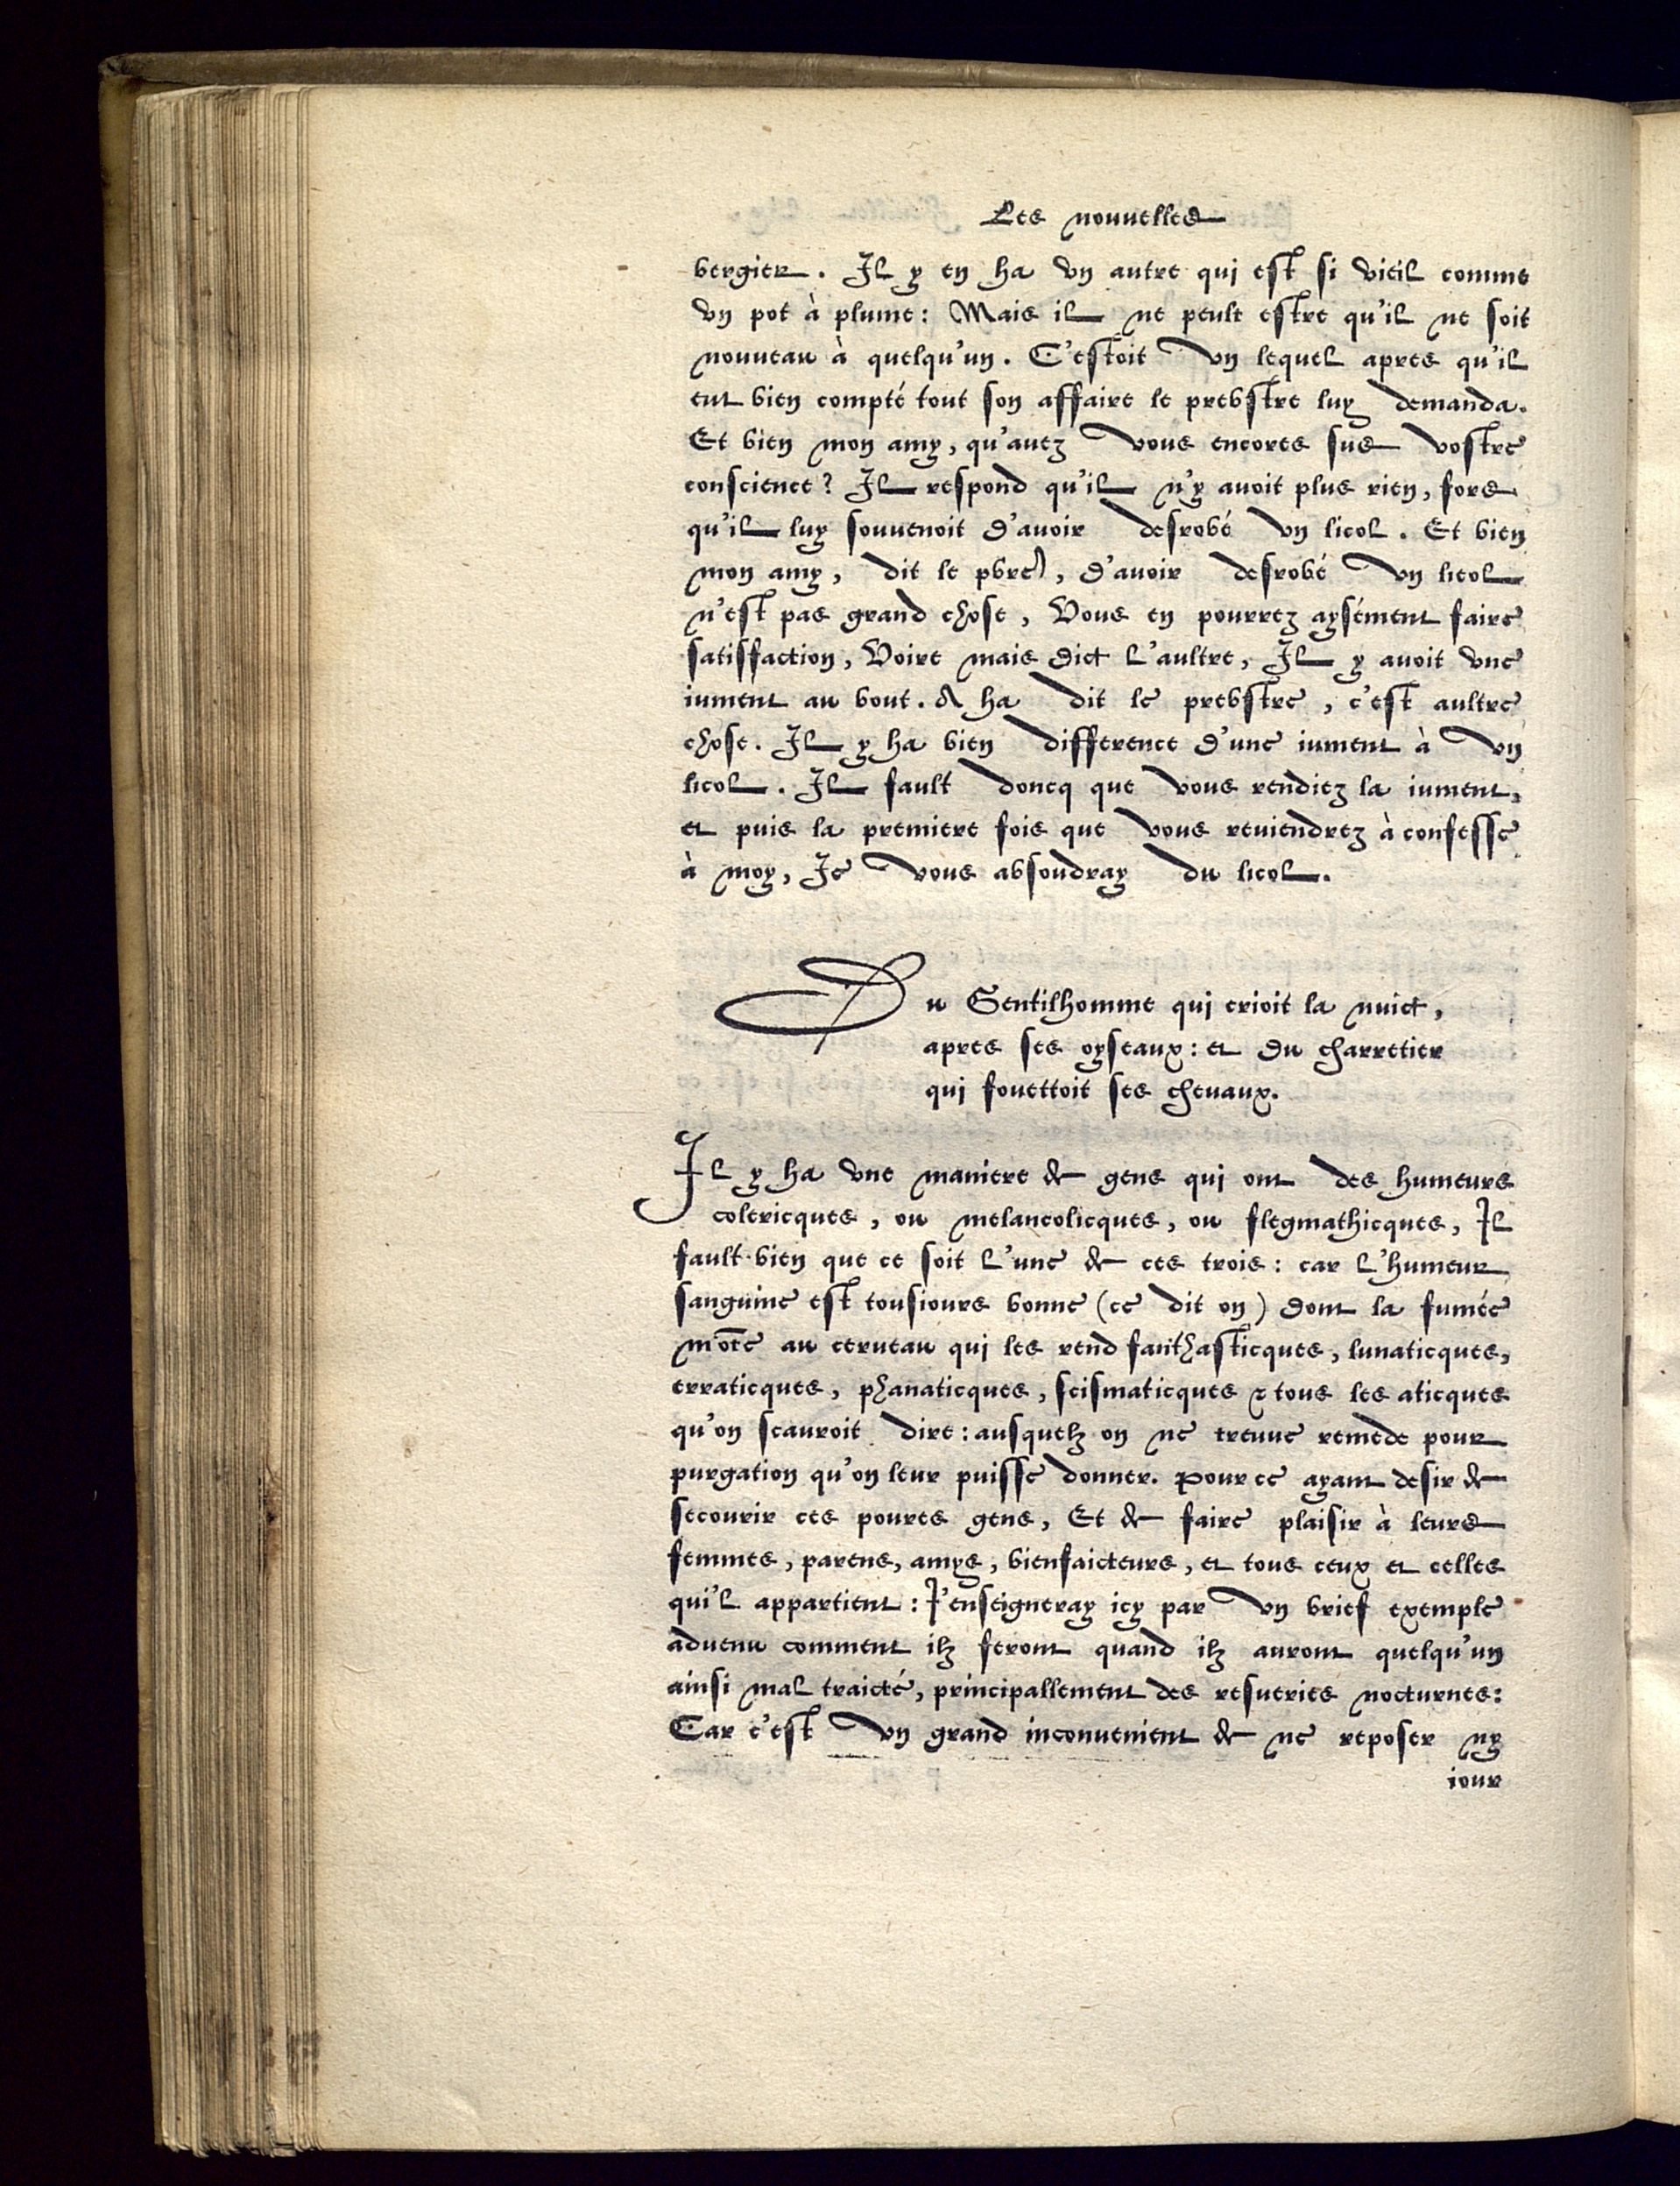 Les nouuelles
bergier. Il y en ha vn autre qui est si vieil comme
vn pot à plume: Mais il ne peult estre qu'il ne soit
nouueau à quelqu'un. C'estoit vn lequel apres qu'il
eut bien compté tout son affaire le prebstre luy demanda.
Et bien mon amy, qu'auez vous encores sus vostre
conscience? Il respond qu'il n'y auoit plus rien, fors
qu'il luy souuenoit d'auoir desrobé vn licol. Et bien
mon amy, dit le pbre, d'auoir desrobé vn licol
n'est pas grand chose, Vous en pourrez aysément faire
satisfaction, Voire mais dict l'aultre, Il y auoit vne
iument au bout. A ha dit le prebstre, c'est aultre
chose. Il y ha bien difference d'une iument à vn
licol. Il fault doncq que vous rendiez la iument,
et puis la premiere fois que vous reuiendrez à confesse
à moy, Ie vous absoudray du licol.
Du Gentilhomme qui crioit la nuict,
apres ses oyseaux: et du charretier
qui fouettoit ses cheuaux.
Il y ha vne maniere de gens qui ont des humeurs
colericques, ou melancolicques, ou flegmathicques, Il
fault bien que ce soit l'une de ces trois: car l'humeur
sanguine est tousiours bonne (ce dit on) dont la fumée
mōte au cerueau qui les rend fanthasticques, lunaticques,
erraticques, phanaticques, scismaticques & tous les aticques
qu'on scauroit dire: ausquelz on ne treuue remede pour
purgation qu'on leur puisse donner. Pource ayant desir de
secourir ces poures gens, Et de faire plaisir à leurs
femmes, parens, amys, bienfaicteurs, et tous ceux et celles
qui'l appartient: I'enseigneray icy par vn brief exemple
aduenu comment ilz feront quand ilz auront quelqu'un
ainsi mal traicté, principallement des resueries nocturnes:
Car c'est vn grand inconuenient de ne reposer ny
iour